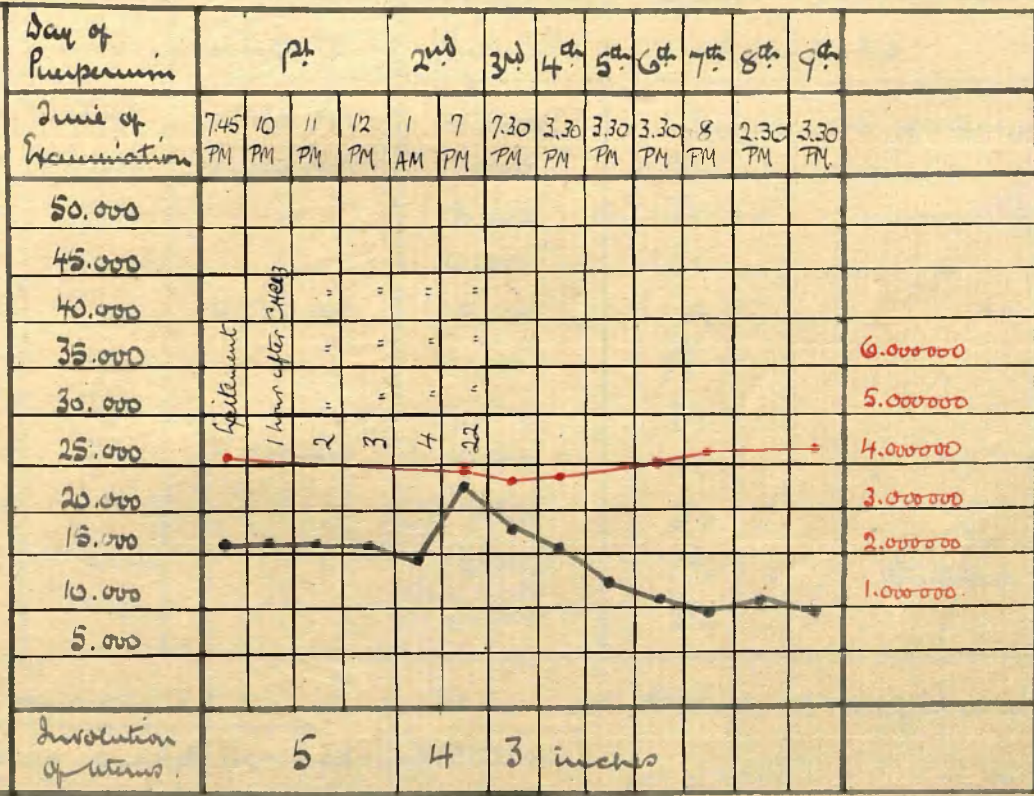 Day of
Puerperium
1st 2nd 3rd 4th 5th 6th 7th 8th 9th
Time of
Examination
7.45 PM 10 PM 11 PM 12 PM 1 AM 7 PM 7.30 PM 3.30 PM 3.30 PM 3.30 PM 8 PM 2.30 PM 3.30 PM
50.000
45.000
40.000
35.000 6.000000
30.000 5.000000
25.000 4.000000
20.000 3.000000
15.000 2.000000
10.000 1.000000
5.000
1 hour after CHCl3
2 " " "
3 " " "
4 " " "
22 " " "
Involution
of uterus.
5 4 3 inches